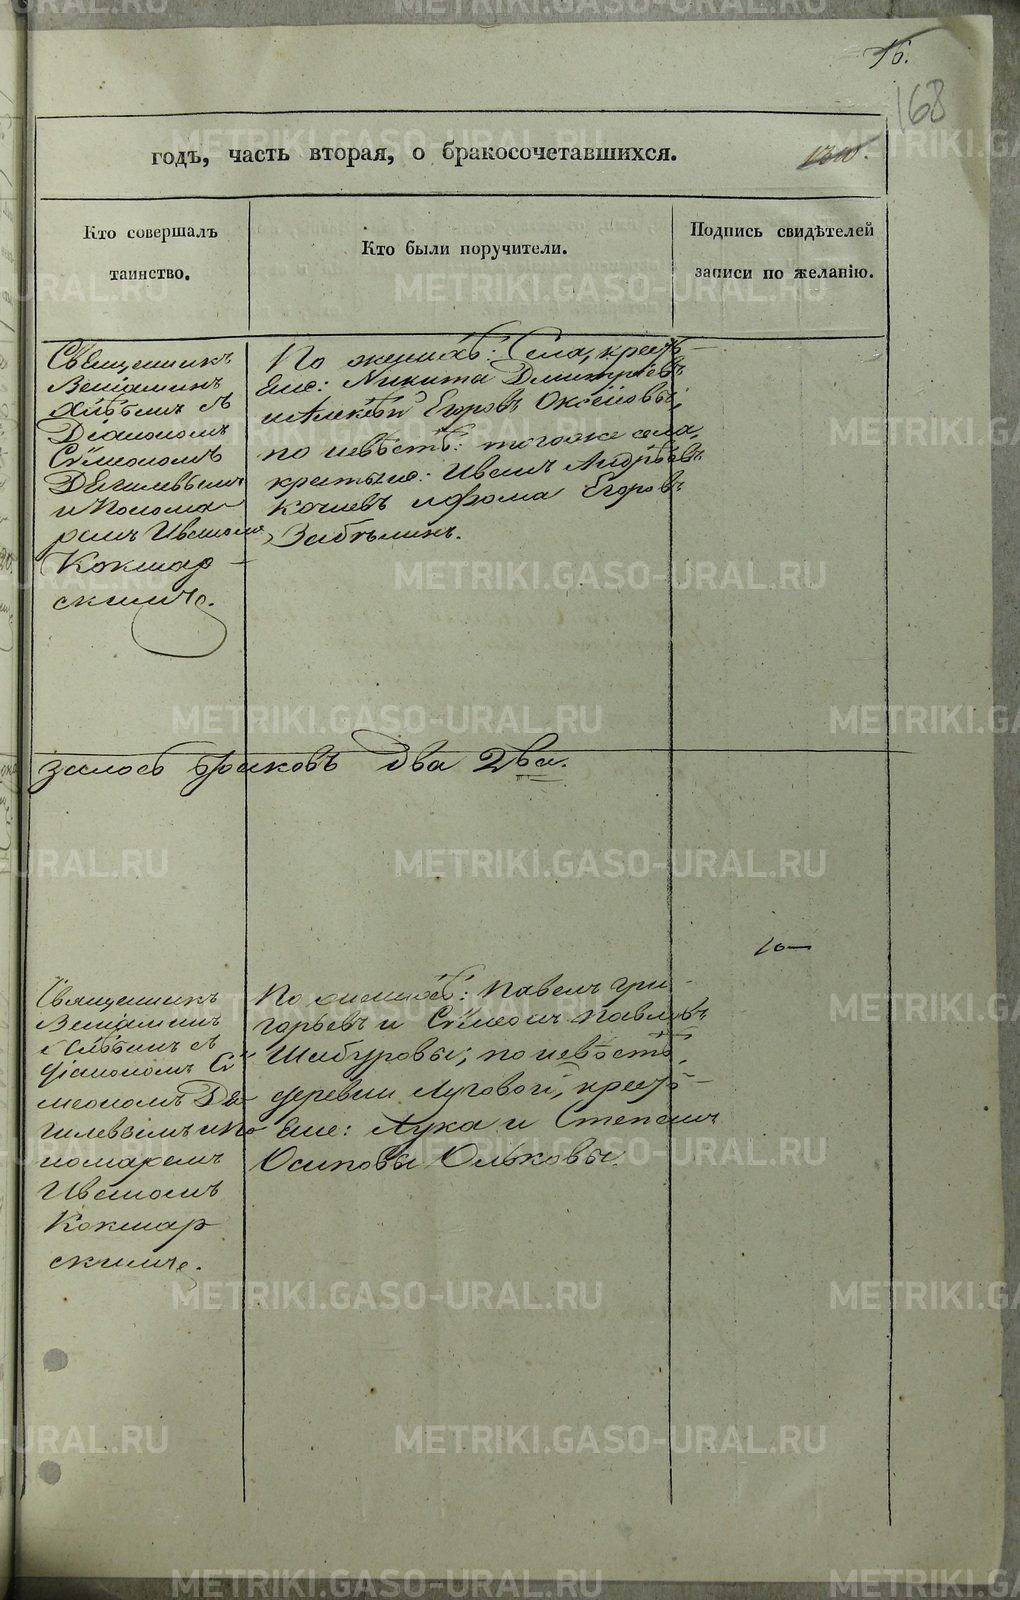 16.
168
годъ, часть вторая, о бракосочетавшихся.
Кто совершалъ
таинство.
Кто были поручители.
Подпись свидѣтелей
записи по желанію.
Священникъ
Веніаминъ
съ
Діакономъ
Сѵмеономъ
Дягилевымъ
и Понома-
ремъ Иваномъ
Кокшар-
скимъ.
По женихѣ: Села, крестья-
не: Никита Дмитріевъ
и Алексѣй Егоровъ
по невѣстѣ: того же села,
крестьяне: Иванъ Андреевъ
Качевъ и Фома Егоровъ
Забѣлинъ.
залось браковъ два 2ва.
10—
Священникъ
Веніаминъ
съ
Діакономъ Сѵ-
меономъ Дя-
гилевымъ и По-
номаремъ
Иваномъ
Кокшар
скимъ.
По женихѣ: Павелъ Гри-
горьевъ и Сѵмеонъ Павловъ
Шабуровы; по невѣстѣ,
деревни Луговой, крестья-
не: Лука и Степанъ
Осиповы Ольковы.
METRIKI.GASO-URAL.RU